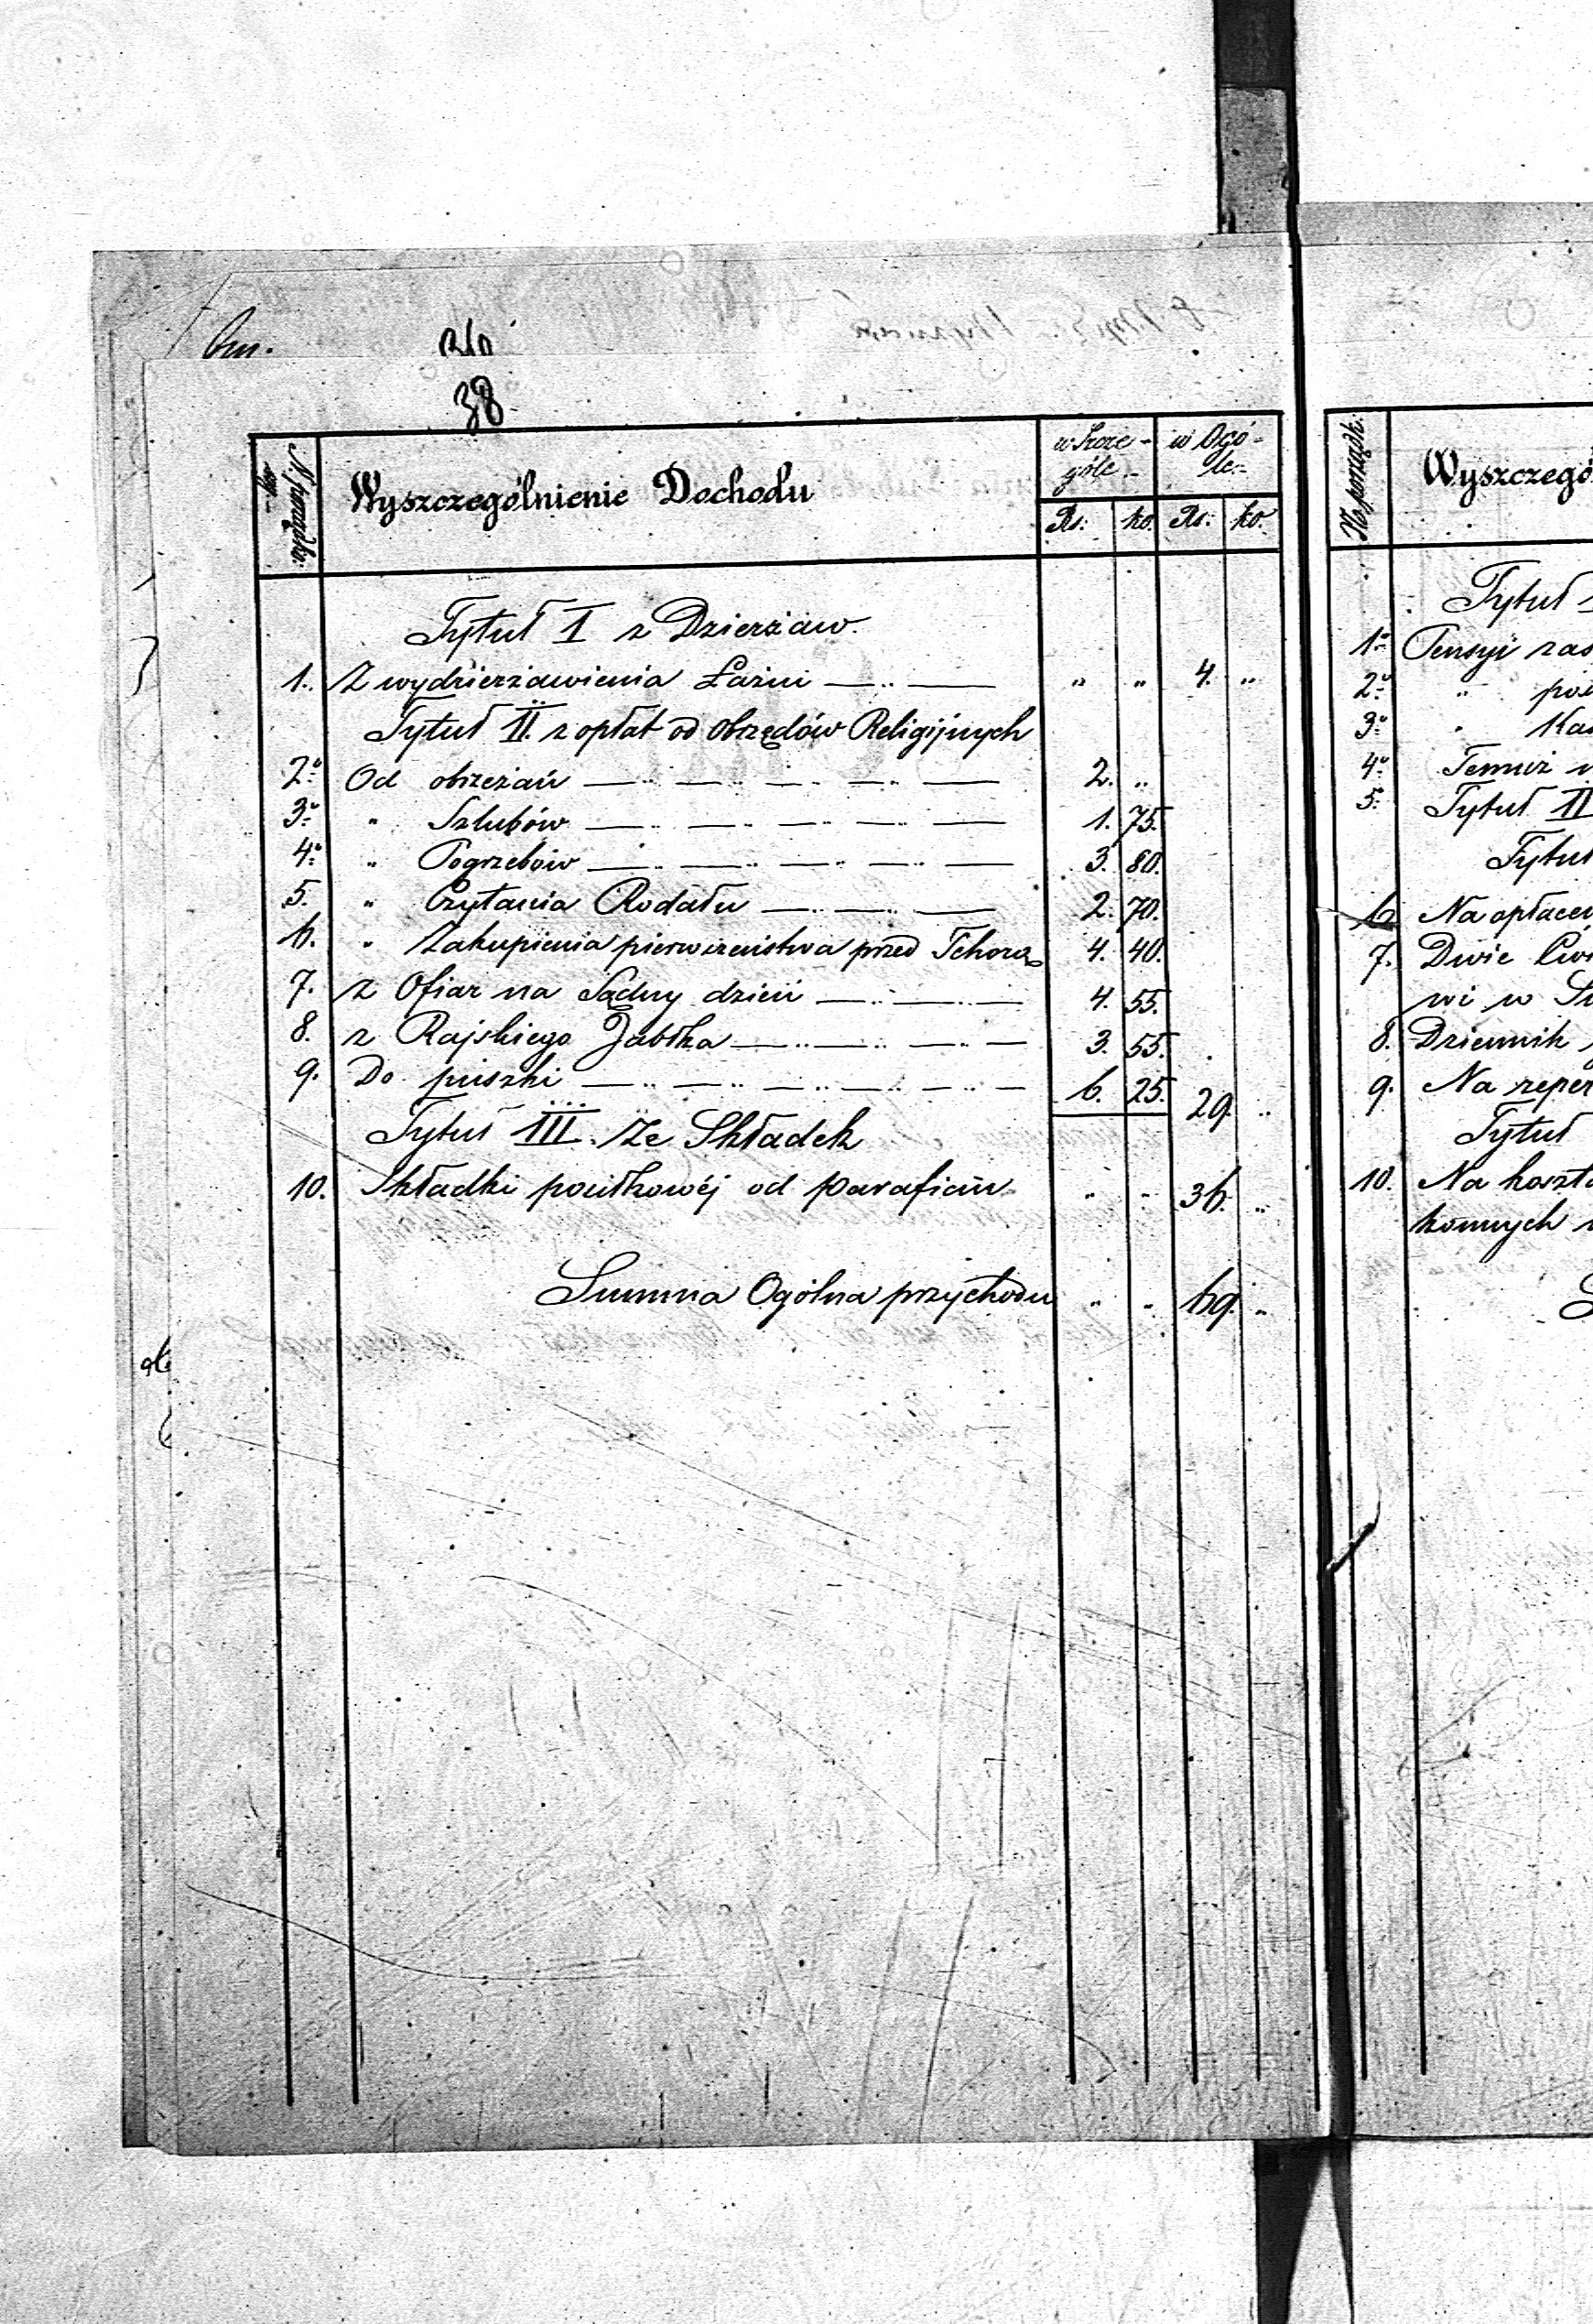 38
N. porządko-
wy
Wyszczególnienie Dochodu
w Szcze-
góle
w Ogó-
le
Rs: ko. Rs: ko.
Tytuł I z Dzierżaw.
1. Z wydzierżawienia Łaźni " " 4. "
Tytuł II. z opłat od obrzędów Religijnych
2. Od obrzezań 2. "
3. " Szlubów 1. 75.
4. " Pogrzebów 3. 80.
5. " Czytania Rodału 2. 70.
6. " Zakupienia pierwszeństwa przed Tchorą 4. 40.
7. Z Ofiar na Sądny dzień 4. 55.
8. z Rajskiego Jabłka 3. 55.
9. Do puszki 6. 25. 29. "
Tytuł III. Ze Składek
10. Składki posiłkowéj od parafian " " 36. "
Summa Ogólna przychodu " " 69. "
N. porządk:
Wyszczegó
Tytuł
1. Pensyi zas
2. "
3. "
4. Temuż
5. Tytuł II
Tytuł
6. Na opłacen
7. Dwie
wi w
8. Dziennik
9. Na reper
Tytuł
10. Na koszta